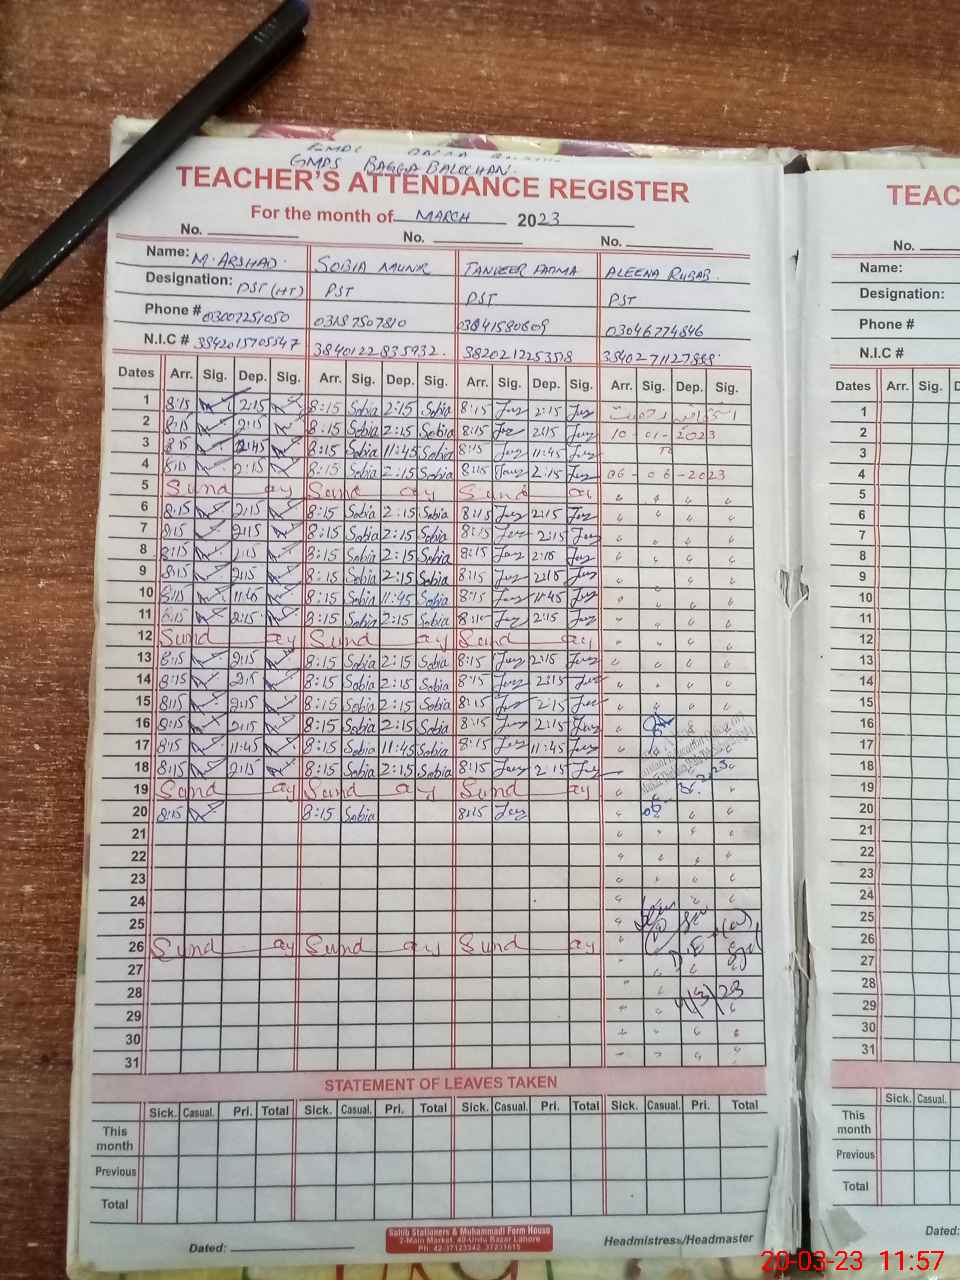 GMPS BAGGA BALOCHAN.
TEACHER'S ATTENDANCE REGISTER
For the month of MARCH 2023
No. No. No.
Name: M. ARSHAD. SOBIA MUNIR TANVEER FATMA ALEENA RUBAB.
Designation: PST (HT) PST PST PST
Phone # 03007251050 03187507810 03841580609 03046774846
N.I.C # 3842015705547 3840122835932. 3820212253518 3840271127888.
Dates Arr. Sig. Dep. Sig. Arr. Sig. Dep. Sig. Arr. Sig. Dep. Sig. Arr. Sig. Dep. Sig.
1 8:15 2:15 8:15 Sobia 2:15 Sobia 8:15 2:15
2 8:15 2:15 8:15 Sobia 2:15 Sobia 8:15 2:15 10-01-2023
3 8:15 12:45 8:15 Sobia 11:45 Sobia 8:15 11:45 To
4 8:15 2:15 8:15 Sobia 2:15 Sobia 8:15 2:15 06-06-2023
5 Sund ay Sund ay Sund ay
6 8:15 2:15 8:15 Sobia 2:15 Sobia 8:15 2:15
7 8:15 2:15 8:15 Sobia 2:15 Sobia 8:15 2:15
8 8:15 2:15 8:15 Sobia 2:15 Sobia 8:15 2:15
9 8:15 2:15 8:15 Sobia 2:15 Sobia 8:15 2:15
10 8:15 11:45 8:15 Sobia 11:45 Sobia 8:15 11:45
11 8:15 2:15 8:15 Sobia 2:15 Sobia 8:15 2:15
12 Sund ay Sund ay Sund ay
13 8:15 2:15 8:15 Sobia 2:15 Sobia 8:15 2:15
14 8:15 2:15 8:15 Sobia 2:15 Sobia 8:15 2:15
15 8:15 2:15 8:15 Sobia 2:15 Sobia 8:15 2:15
16 8:15 2:15 8:15 Sobia 2:15 Sobia 8:15 2:15
17 8:15 11:45 8:15 Sobia 11:45 Sobia 8:15 11:45
18 8:15 2:15 8:15 Sobia 2:15 Sobia 8:15 2:15
19 Sund ay Sund ay Sund ay
20 8:15 8:15 Sobia 8:15
21
22
23
24
25
26 Sund ay Sund ay Sund ay
27
28
29
30
31
STATEMENT OF LEAVES TAKEN
Sick. Casual. Pri. Total Sick. Casual. Pri. Total Sick. Casual. Pri. Total Sick. Casual. Pri. Total
This month
Previous
Total
Dated:
Sahib Stationers & Muhammadi Form House
2-Main Market, 40-Urdu Bazar Lahore
Ph: 42-37123342, 37231615
Headmistress/Headmaster
TEAC
No.
Name:
Designation:
Phone #
N.I.C #
Dates Arr. Sig. D
1
2
3
4
5
6
7
8
9
10
11
12
13
14
15
16
17
18
19
20
21
22
23
24
25
26
27
28
29
30
31
Sick. Casual.
This month
Previous
Total
Dated:
20-03-23 11:57